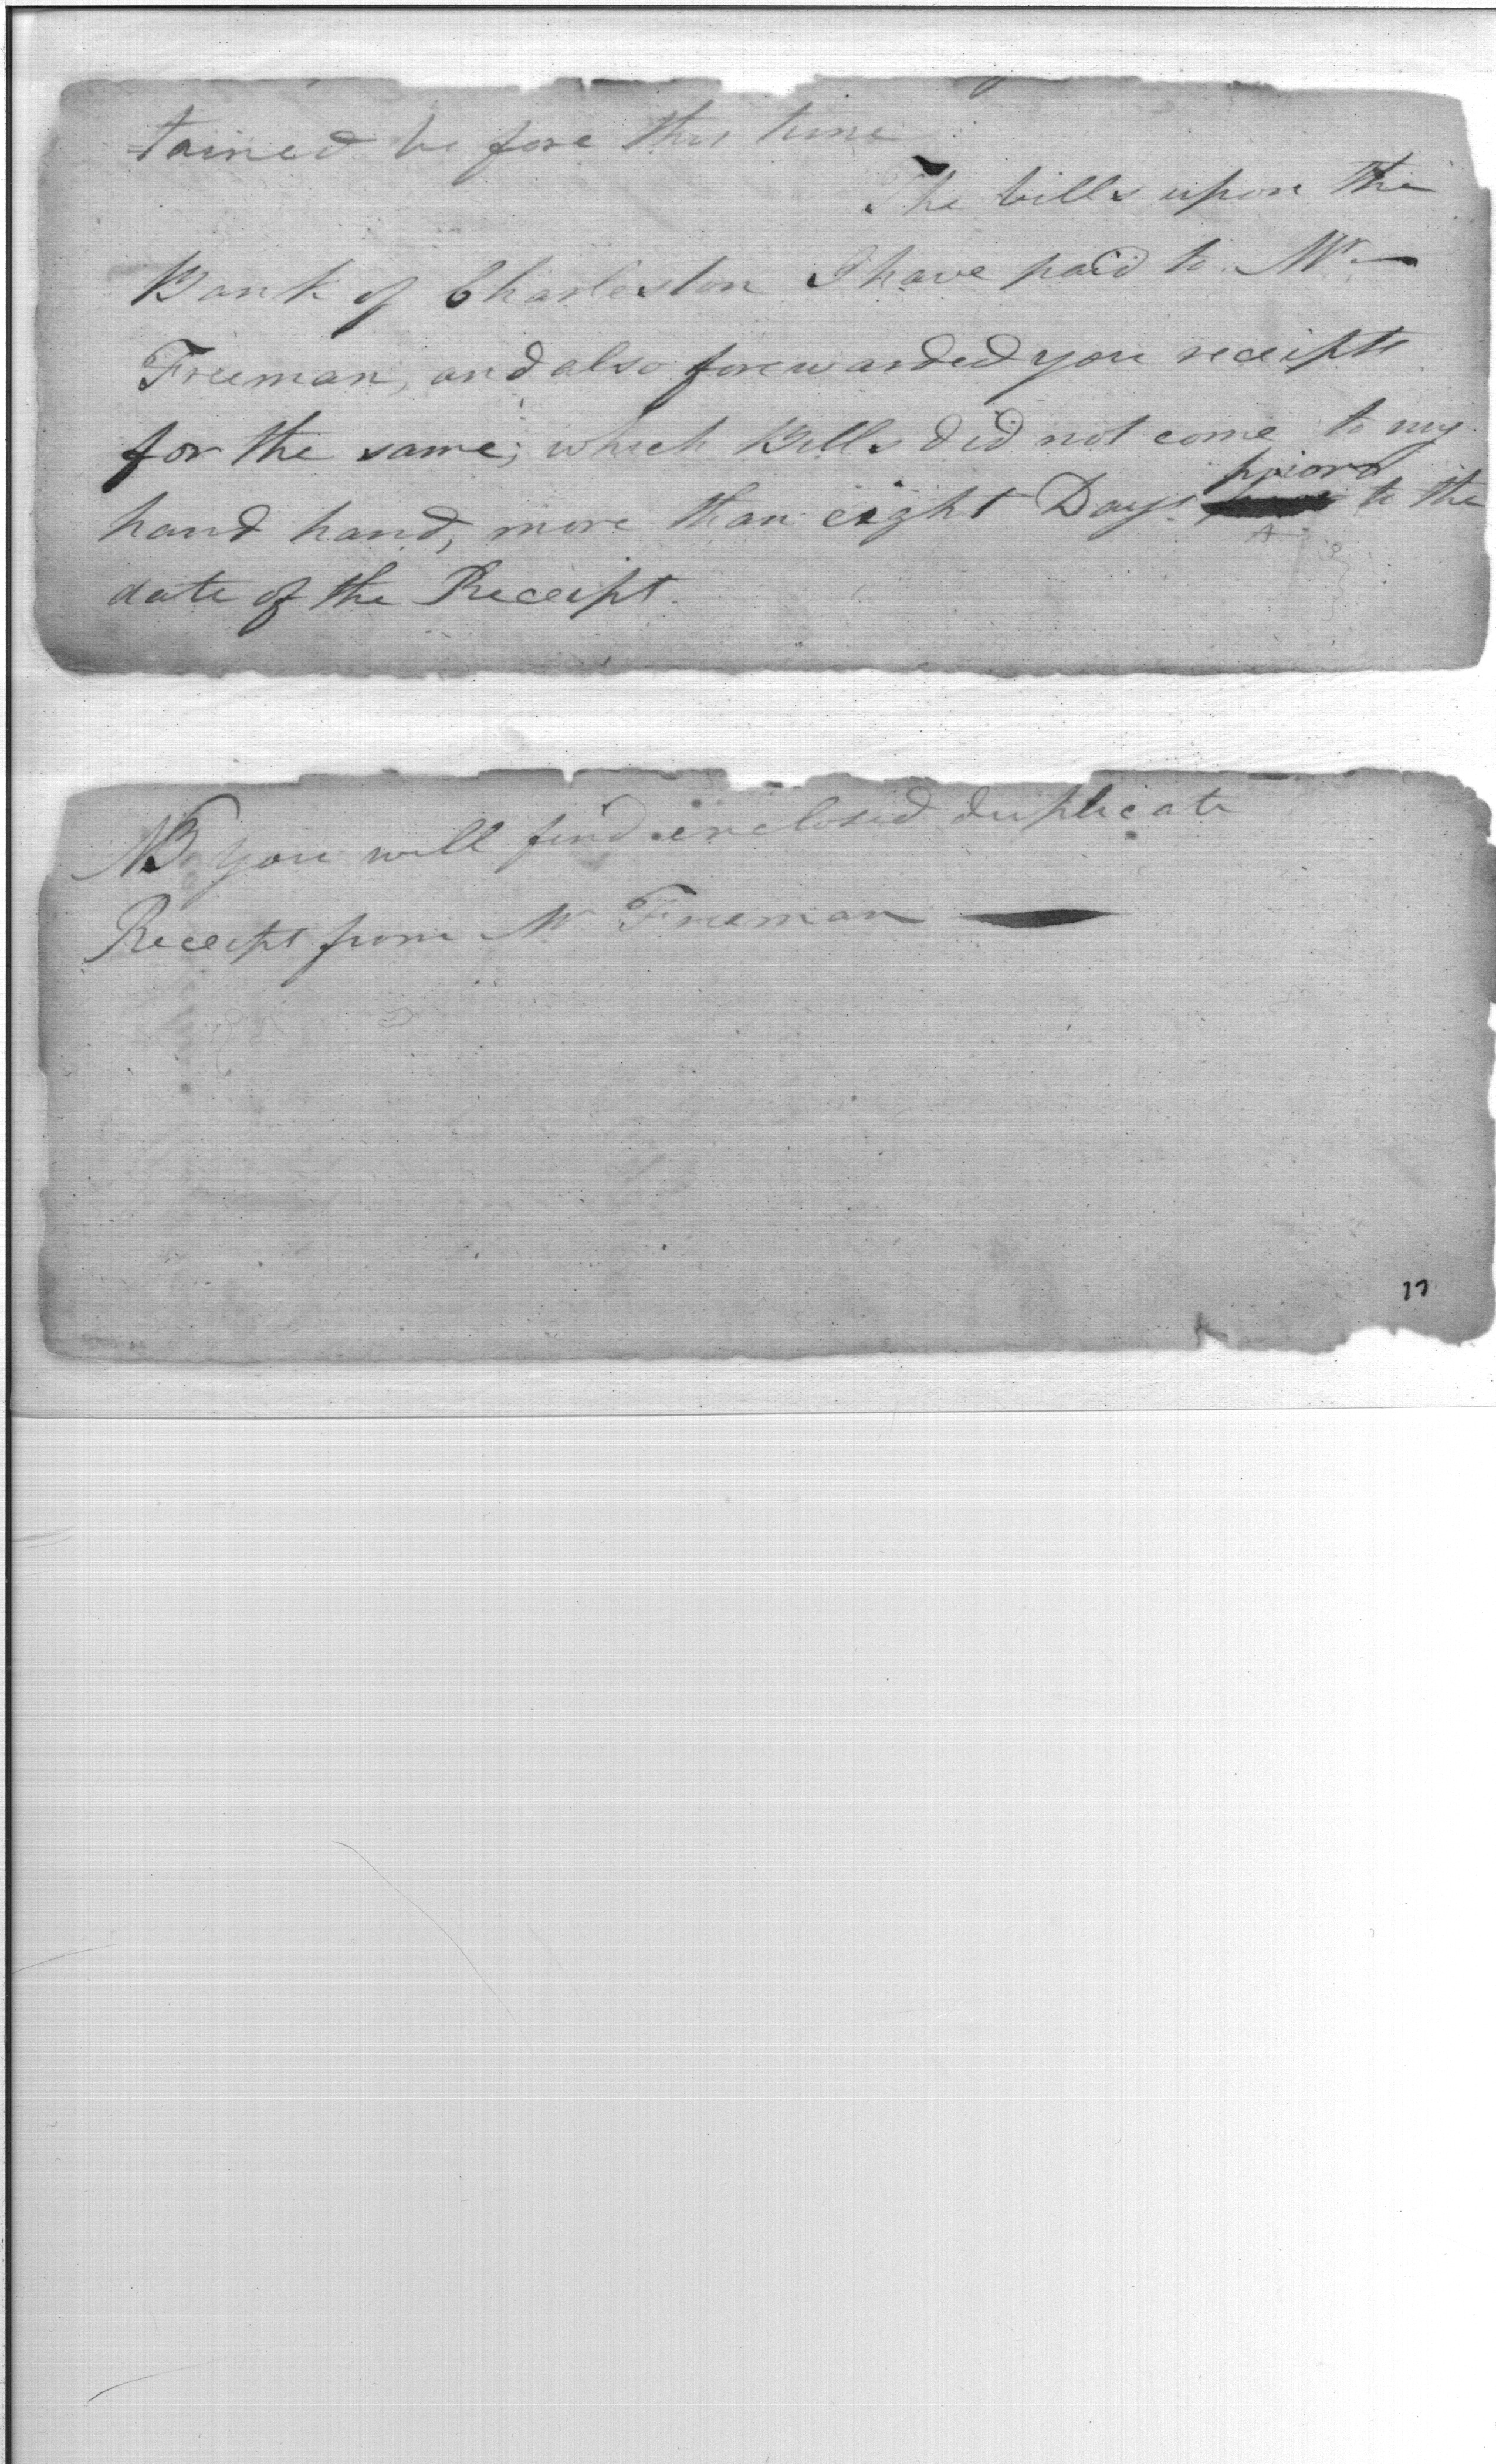 tained before this time
The bills upon the
Bank of Charleston I have paid to Mr
Freeman, and also forewarded you receipts
for the same; which Bills did not come to my
hand hand, more than eight Days prior to the
date of the Receipt.
NB you will find enclosed duplicate
Receipt from Mr Freeman